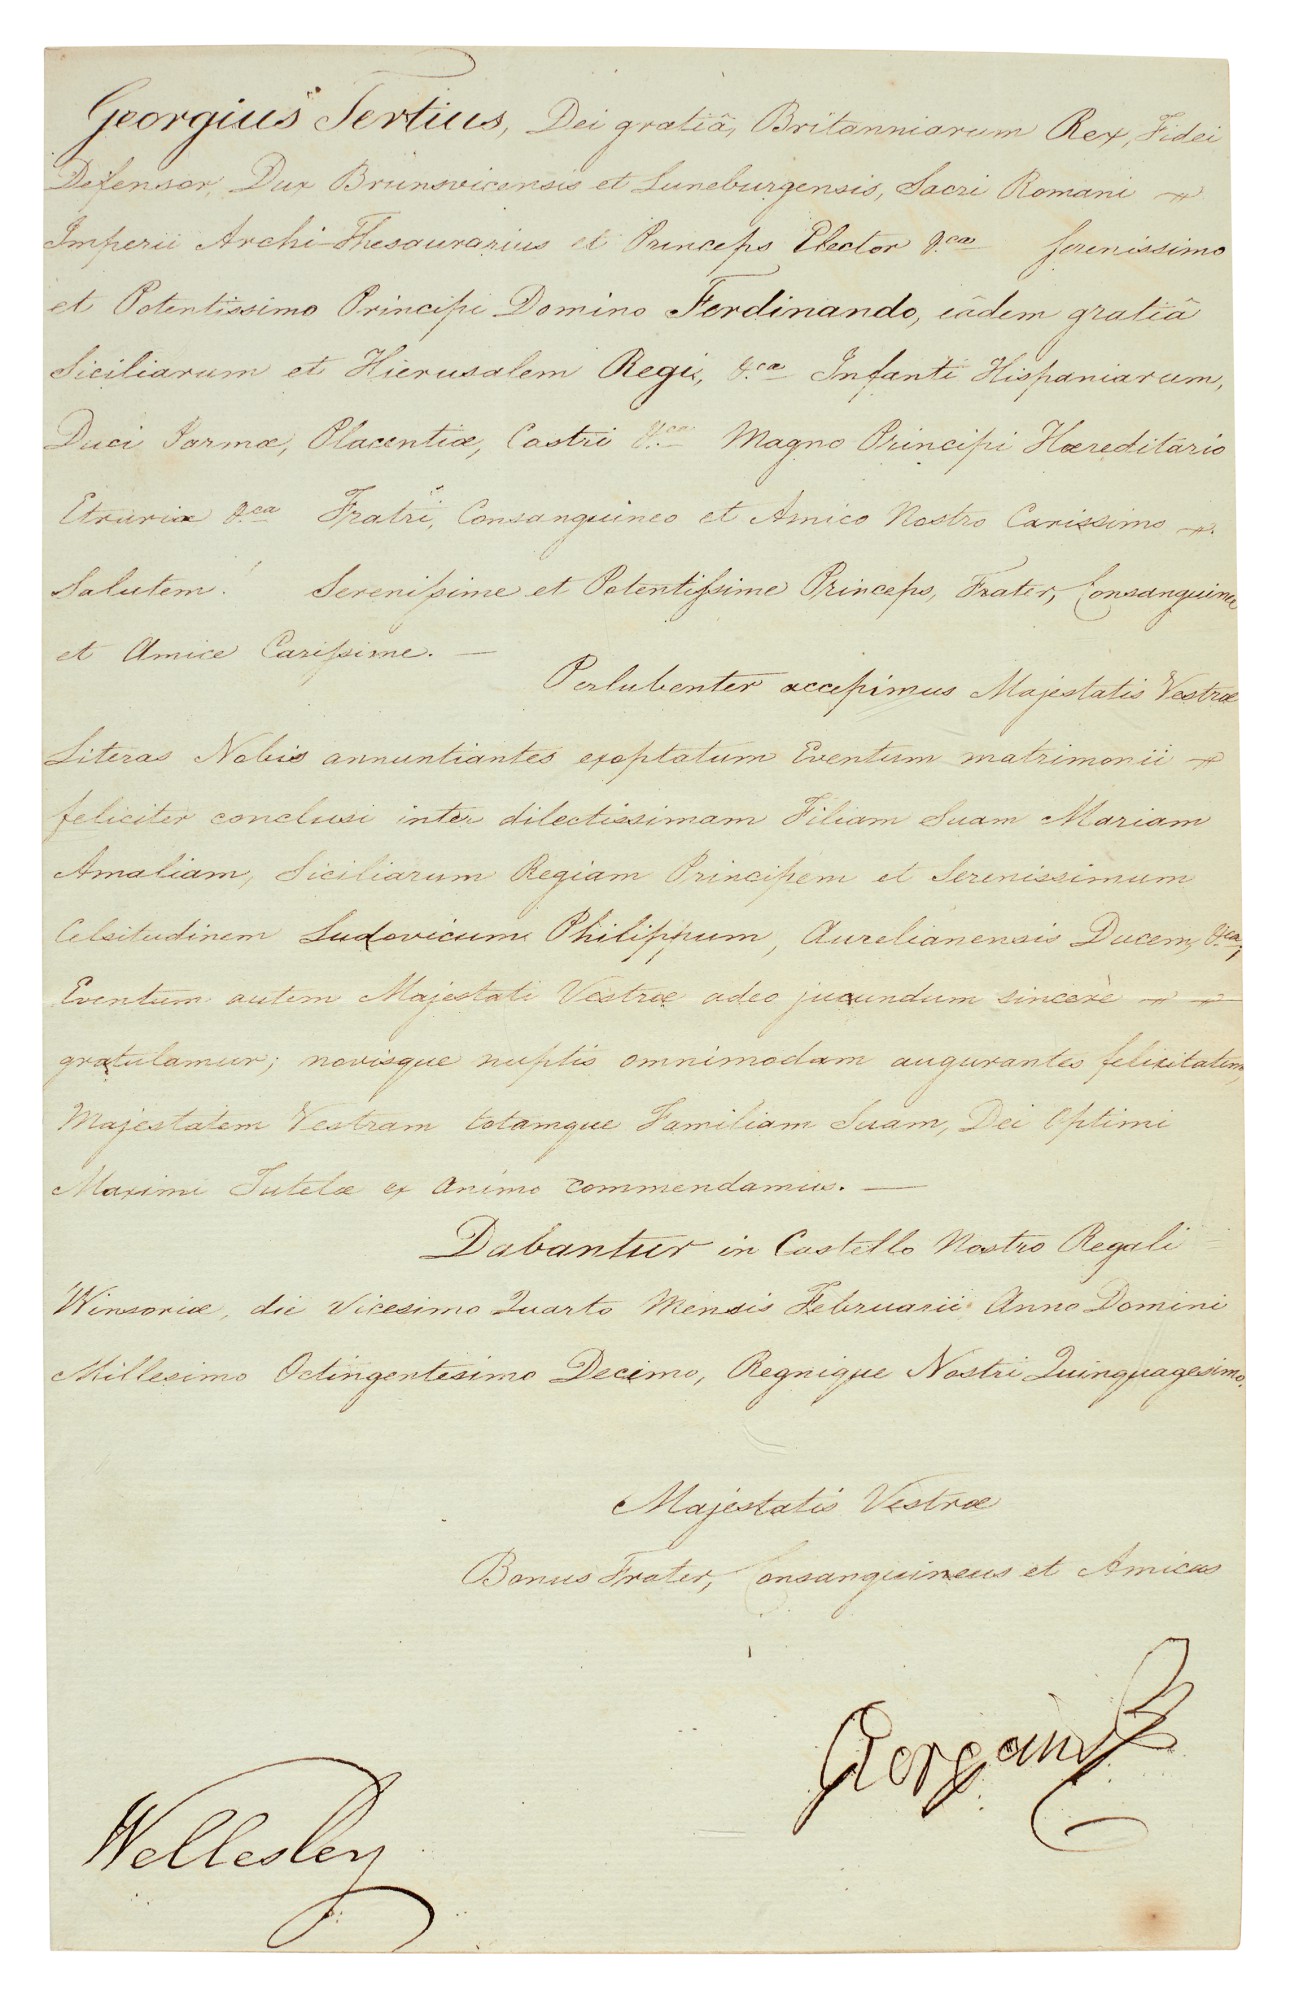 Georgius Tertius, Dei gratiâ, Britanniarum Rex, Fidei
Defensor, Dux Brunsvicensis et Luneburgensis, Sacri Romani
Imperii Archi-Thesaurarius et Princeps Elector &ca Serenissimo
et Potentissimo Principi Domino Ferdinando, eâdem gratiâ
Siciliarum et Hierusalem Regi, &ca Infanti Hispaniarum,
Duci Parmæ, Placentiæ, Castri &ca Magno Principi Hæreditario
Etruriæ &ca Fratri, Consanguineo et Amico Nostro Carissimo
Salutem! Serenissime et Potentissime Princeps, Frater, Consanguinee
et Amice Carissime. —
Perlubenter accepimus Majestatis Vestræ
Literas Nobis annuntiantes exoptatum Eventum matrimonii
feliciter conclusi inter dilectissimam Filiam Suam Mariam
Amaliam, Siciliarum Regiam Principem et Serenissimum
Celsitudinem Ludovicum Philippum, Aurelianensis Ducem, &ca;
Eventum autem Majestati Vestræ adeo jucundum sincerè
gratulamur; novisque nuptis omnimodam augurantes felicitatem,
Majestatem Vestram totamque Familiam Suam, Dei Optimi
Maximi Tutelæ ex animo commendamus. —
Dabantur in Castello Nostro Regali
Winsoriæ, die Vicesimo Quarto Mensis Februarii Anno Domini
Millesimo Octingentesimo Decimo, Regnique Nostri Quinquagesimo.
Majestatis Vestræ
Bonus Frater, Consanguineus et Amicus
Georgius R
Wellesley